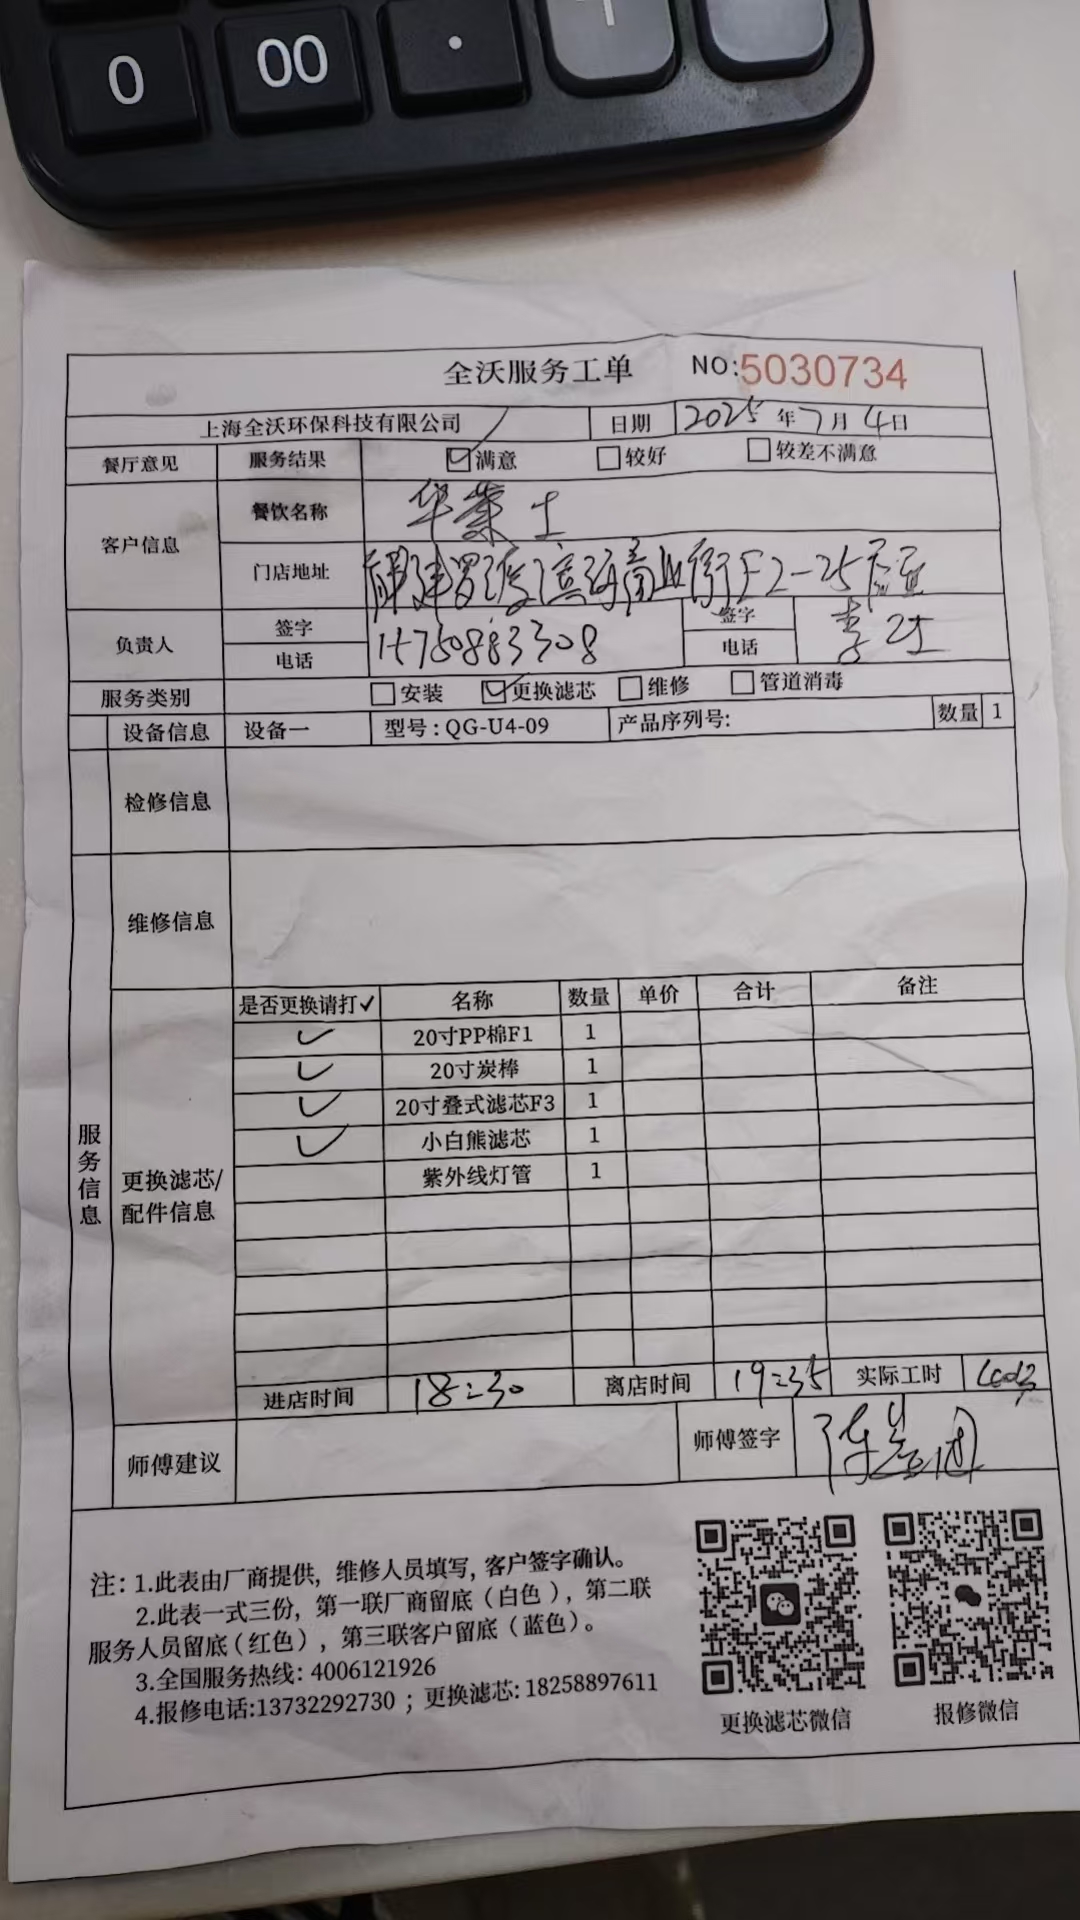 0 00 ·
全沃服务工单 NO:5030734
上海全沃环保科技有限公司 日期 2025年7月4日
餐厅意见 服务结果 ☑满意 □较好 □较差不满意
客户信息 餐饮名称 华莱士
门店地址 福建 滨海商业街F2-25
负责人 签字 签字
电话 电话
服务类别 □安装 ☑更换滤芯 □维修 □管道消毒
设备信息 设备一 型号:QG-U4-09 产品序列号: 数量 1
检修信息
维修信息
服务信息
更换滤芯/配件信息
是否更换请打✓ 名称 数量 单价 合计 备注
✓ 20寸PP棉F1 1
✓ 20寸炭棒 1
✓ 20寸叠式滤芯F3 1
✓ 小白熊滤芯 1
紫外线灯管 1
进店时间 18:30 离店时间 19:35 实际工时
师傅建议 师傅签字
注: 1.此表由厂商提供, 维修人员填写, 客户签字确认。
2.此表一式三份, 第一联厂商留底(白色), 第二联
服务人员留底(红色), 第三联客户留底(蓝色)。
3.全国服务热线: 4006121926
4.报修电话:13732292730 ; 更换滤芯: 18258897611
更换滤芯微信 报修微信